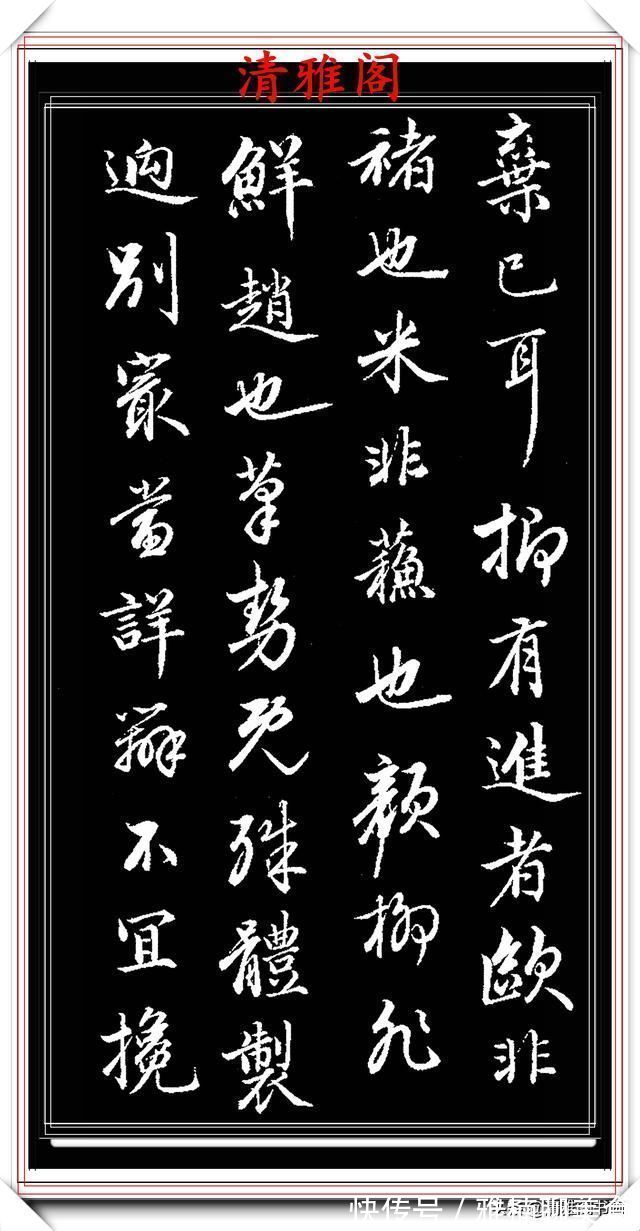 清雅阁
棄已耳抑有進者歐非
褚也米非蘇也顏柳非
鮮趙也筆勢既殊體製
迥別最當詳辨不宜攙
快传号 / 雅